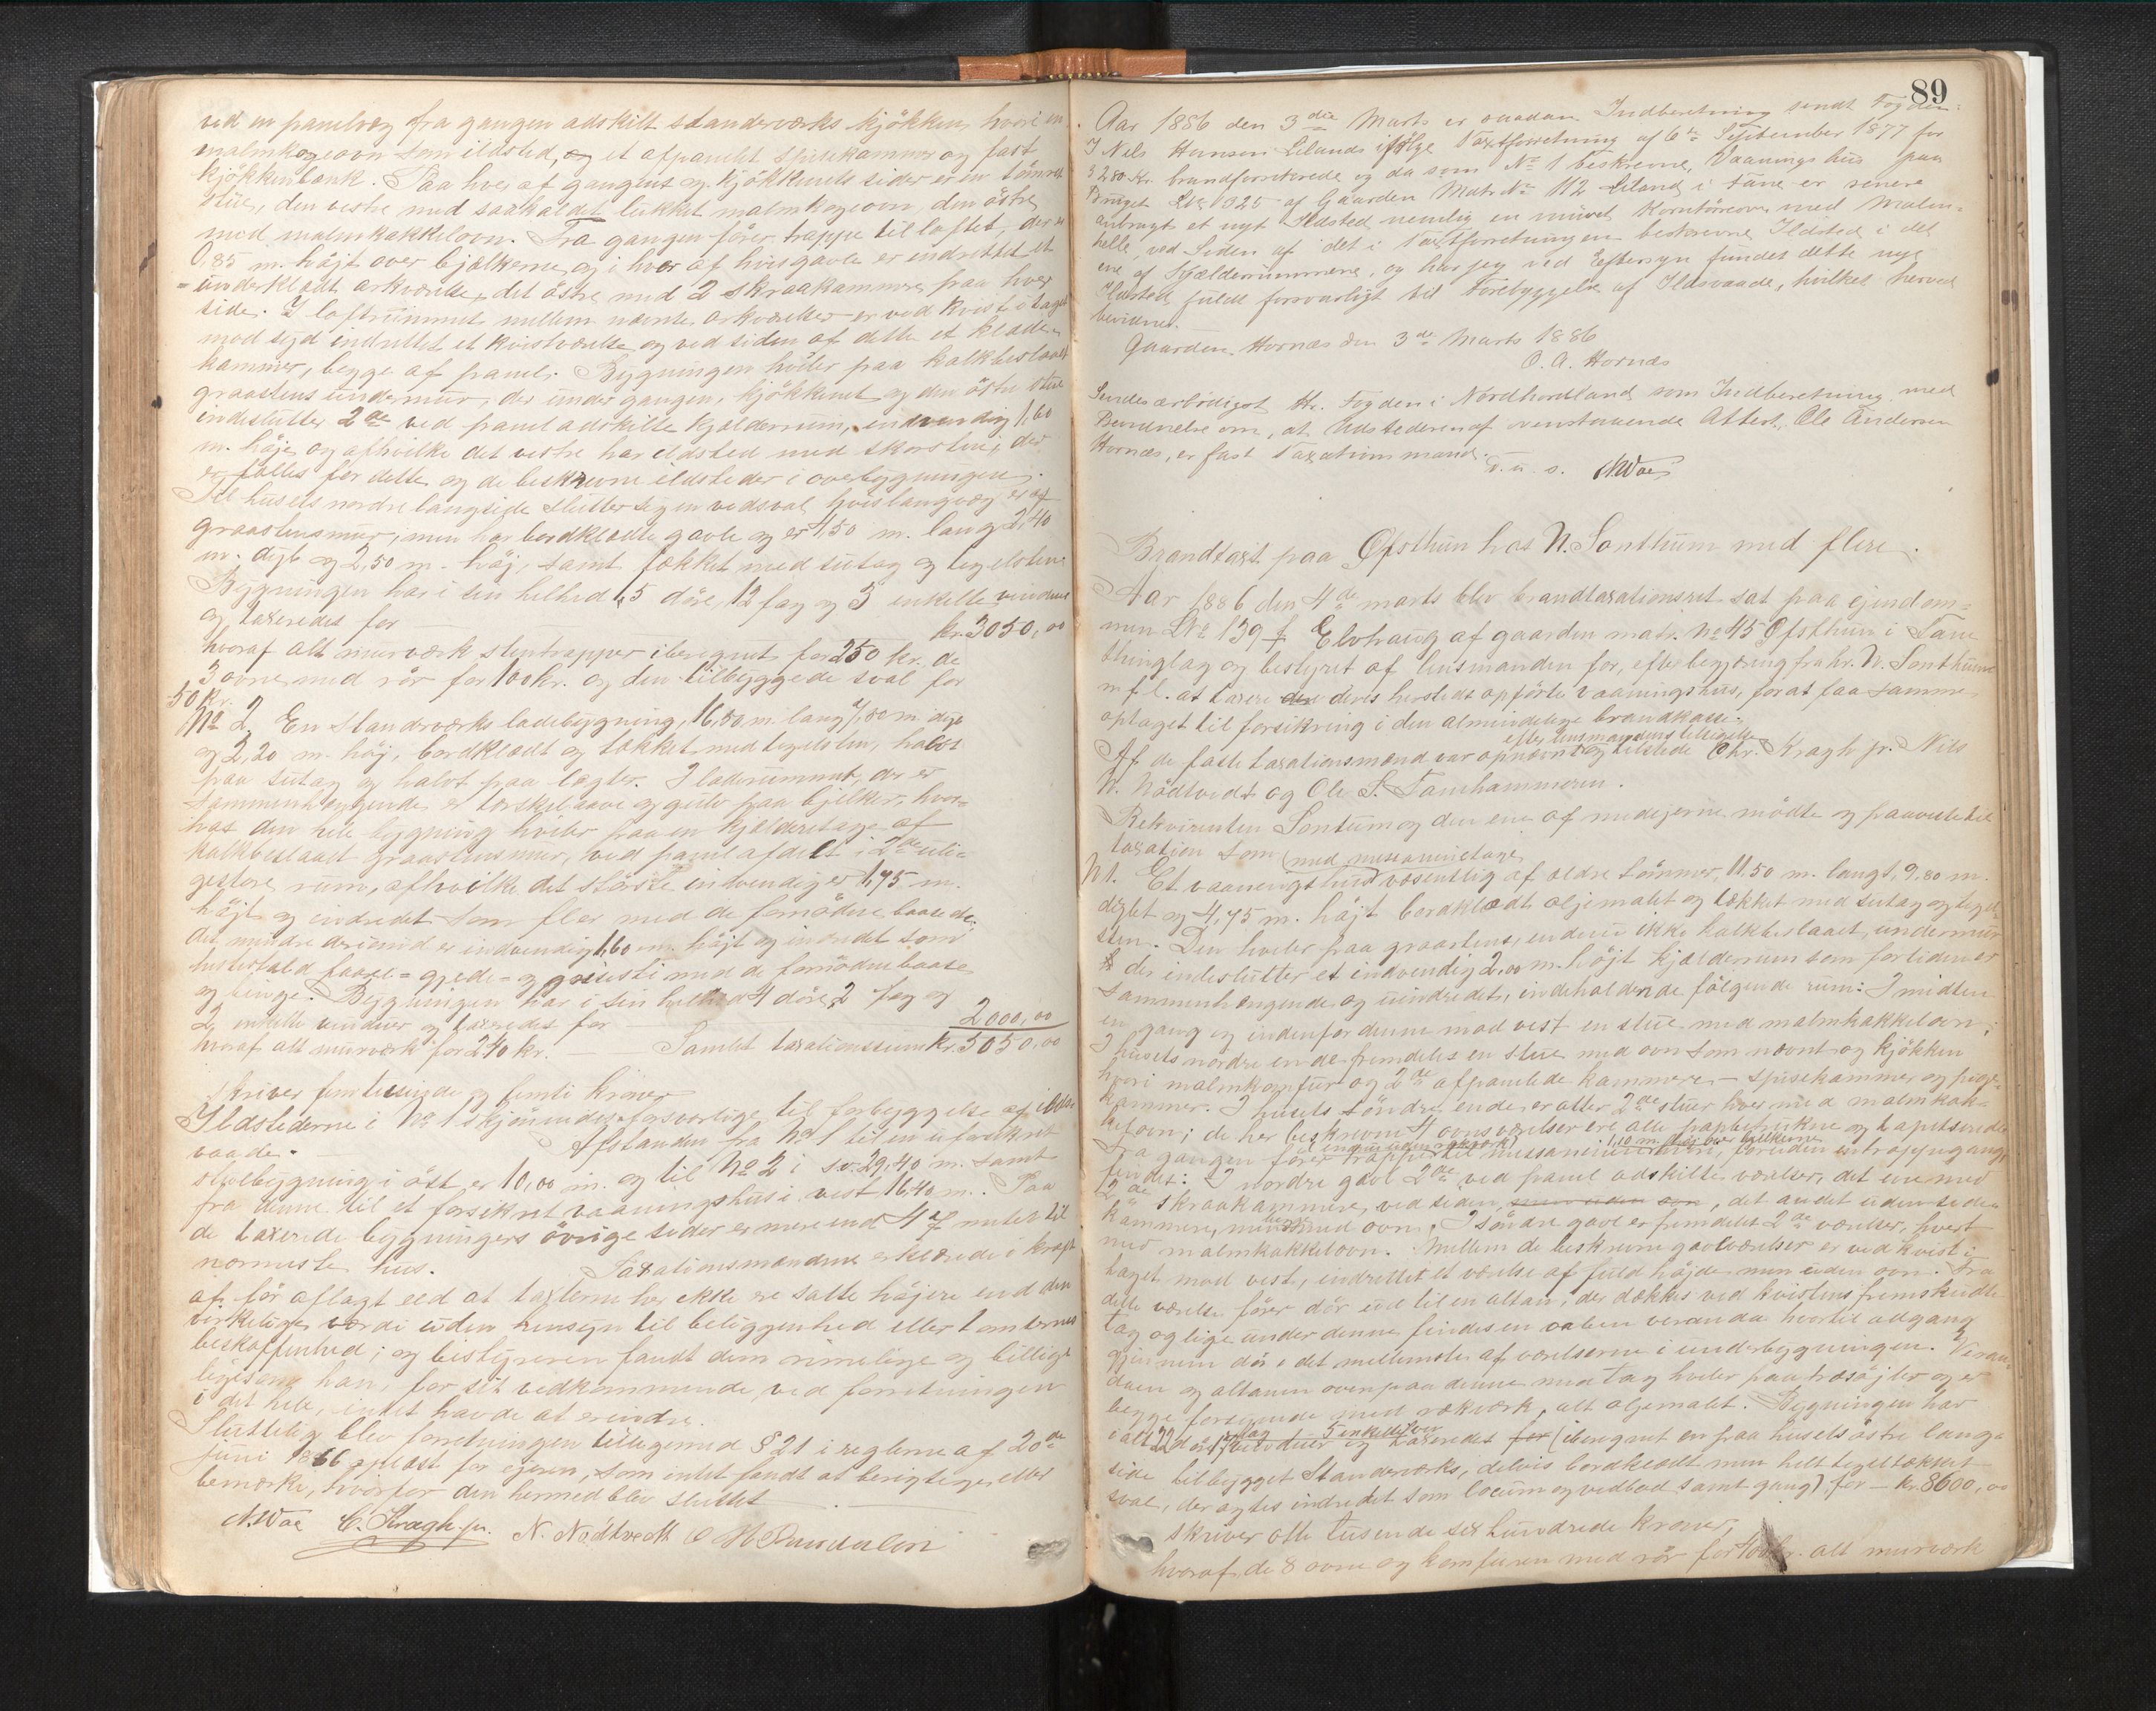 ved en panelvæg fra gangen adskilt standerværks kjökken, hvori en
malmkogeovn som ildsted, og et afpanelet spisekammer og fast
kjökkenbænk. Paa hver af gangens og kjökkenets sider er en tömret
stue, den vestre med saakaldet lukket malmkogeovn, den östre
med malmkakkelovn. Fra gangen förer trappe til loftet, der er
0,85 m. höjt over bjelkerne og i hver af hvis gavle er indrettet et
underklædt arkværelse, det östre med 2 skraakammere paa hver
side. I loftrummet mellem nævnte arkværelser er ved kvist i taget
mod syd indrettet et kvistværelse og ved siden af dette et klæde-
kammer, begge af panel. Bygningen hviler paa kalkbeslaaet
graastens undermur, der under gangen, kjökkenet og den östre stue
indeslutter 2de ved panel adskilte kjælderrum, indvendig 1,60
m. höje og af hvilke det vestre har ildsted med skorsten, der
er fælles for dette og de beskrevne ildsteder i overbygningen.
Til husets nordre langside slutter sig en vedsval, hvis langvæg er af
graastensmur, men har bordklædte gavle og er 4,50 m. lang 2,40
m. dyb og 2,50 m. höj, samt tækket med sutag og tegelsten
Bygningen har i sin helhed 15 döre, 12 fag og 3 enkelte vinduer
og taxeredes for — kr. 3050,00
hvoraf alt murværk stentrapper iberegnet for 250 kr. de
3 ovne med rör for 100 kr. og den tilbyggede sval for
50 kr.
No 2. En standerværks ladebygning, 16,80 m. lang 7,80 m. dyb
og 2,20 m. höj, bordklædt og tækket med tegelsten, halvt
paa sutag og halvt paa lægter. I laderummet, der er
sammenhængende er tærskelaave og gulv paa bjelker, hvor-
hos den hele bygning hviler paa en kjælderetage af
kalkbeslaaet graastensmur, ved panel afdelt i 2de uli-
gestore rum, af hvilke det störste indvendig er 1,75 m.
höjt og indredet som flor med de fornödne baase de.
det mindre derimod er indvendig 1,60 m. höjt og indredet som
hestestald faare- gjede- og grisesti med de fornödne baase
og binge. Bygningen har i sin helhed 4 döre, 2 fag og
2 enkelte vinduer og taxeredes for — 2000,00
hvoraf alt murværk for 240 kr. — Samlet taxationssum kr. 5050,00
skriver fem tusinde og femti kroner
Ildstederne i No 1 skjönnedes forsvarlige til forbyggelse af ilds-
vaade. Afstanden fra No 1 til en uforsikret
stolbygning i öst er 10,00 m. og til No 2 i sv. 29,40 m. samt
fra denne til et forsikret vaaningshus i vest 16,40 m. Paa
de taxerede bygningers övrige sider er mere end 47 meter til
nærmeste hus. Taxationsmændene erklærede i kraft
af för aflagt eed at taxterne her ikke ere satte höjere end den
virkelige værdi uden hensyn til beliggenhed eller tomternes
beskaffenhed; og bestyreren fandt dem rimelige og billige
ligesom han, for sit vedkommende, ved forretningen
i det hele, intet havde at erindre.
Sluttelig blev forretningen tilligemed § 21 i reglerne af 20de
juni 1866 oplæst for ejeren, som intet fandt at berigtige eller
bemærke, hvorfor den hermed blev sluttet
N. Woe C. Kragh jr. N. Nödtvedt
89
Aar 1886 den 3die Marts er saadan Indberetning sendt Fogden:
I Nels Hansen Lilands ifölge Taxtforretning af 6te September 1877 for
3280 Kr. brandforsikrede og da som No 1 beskrevne, Vaaningshus paa
Bruget 102 b af Gaarden Matr. No 112 Liland i Fane er senere
anbragt et nyt Ildsted nemlig en muret Korntöreovn med Malm-
helle, ved Siden af det i Taxtforretningen beskrevne Ildsted i det
ene af Kjælderrummene, og har jeg ved Eftersyn fundet dette nye
Ildsted fuldt forsvarligt til Forebyggelse af Ildsvaade, hvilket herved
bevidnes.
Gaarden Hornæs den 3de Marts 1886
O. A. Hornæs
Sendes ærbödigst Hr. Fogden i Nordhordland som Indberetning med
Bevidnelse om, at Udstederen af ovenstaaende Attest, Ole Andersen
Hornæs, er fast Taxationsmand.
D. u. s. N. Woe
Brandtaxt paa Øfsthun hos N. Sonthum med flere.
Aar 1886 den 4de marts blev brandtaxationsret sat paa ejendom-
men LNo 139 f Elvhaug af gaarden matr. No 45 Øfsthun i Fane
thinglag og bestyret af lensmanden for, efter begjæring fra hr. N. Sonthum
m. fl. at taxere den deres hersteds opförte vaaningshus, for at faa samme
optaget til forsikring i den almindelige brandkasse.
efter lensmandens tilsigelse
Af de faste taxationsmænd var opnævnt og tilstede Chr. Kragh jr. Nils
N. Nödtvedt og Ole S. Fanehammeren.
Rekvirenten Sontum og den ene af medejerne mödte og paaviste til
taxation som
(med messaninetage)
N1. Et vaaningshus væsentlig af ældre tömmer, 11,50 m. langt, 9,80 m.
dybt og 4,75 m. höjt bordklædt oljemalet og tækket med sutag og tegel-
sten. Den hviler paa graastens, endnu ikke kalkbeslaaet, undermur
der indeslutter et indvendig 2,00 m. höjt kjælderrum som for tiden er
sammenhængende og uindredet, indeholdende fölgende rum: I midten
en gang og indenfor denne mod vest en stue med malmkakkelovn;
I husets nordre ende fremdeles en stue med ovn som nævnt og kjökken
hvori malmkomfur og 2de afpanelede kammere — spisekammer og pige-
kammer. I husets söndre ende er atter 2de stuer hver med malmkak-
kelovn; de her beskrevne 4 ovnsværelser ere alle papbetrukne og tapetserede
Fra gangen förer trapper til messanin, foruden en trappegang,
findes: I nordre gavl 2de ved panel adskilte værelser, det ene med
2de skraakammere ved siden, men uden ovn, det andet uden side-
kammere, men med ovn. I söndre gavl er fremdeles 2de værelser, hvert
med malmkakkelovn. Mellem de beskrevne gavlværelser er ved kvist i
taget mod vest, indrettet et værelse af fuld höjde men uden ovn. Fra
dette værelse förer dör ud til en altan, der dækkes ved kvistens fremskudte
tag og lige under denne findes en aaben veranda hvortil adgang
gjennem dör i det mellemste af værelserne i underbygningen. Veran-
daen og altanen ovenpaa denne med tag hviler paa træsöjler og er
begge forsynede med rækværk, alt oljemalet. Bygningen har
i alt 22 döre, vinduer og taxeredes for (iberegnet en paa husets östre lang-
side tilbygget standerværks, delvis bordklædt men helt tegltækket
sval, der agtes indredet som locum og vedbod samt gang). for — kr. 8600,00
skriver otte tusende sex hundrede kroner,
hvoraf de 8 ovne og komfuren med rör for 400 kr. alt murværk